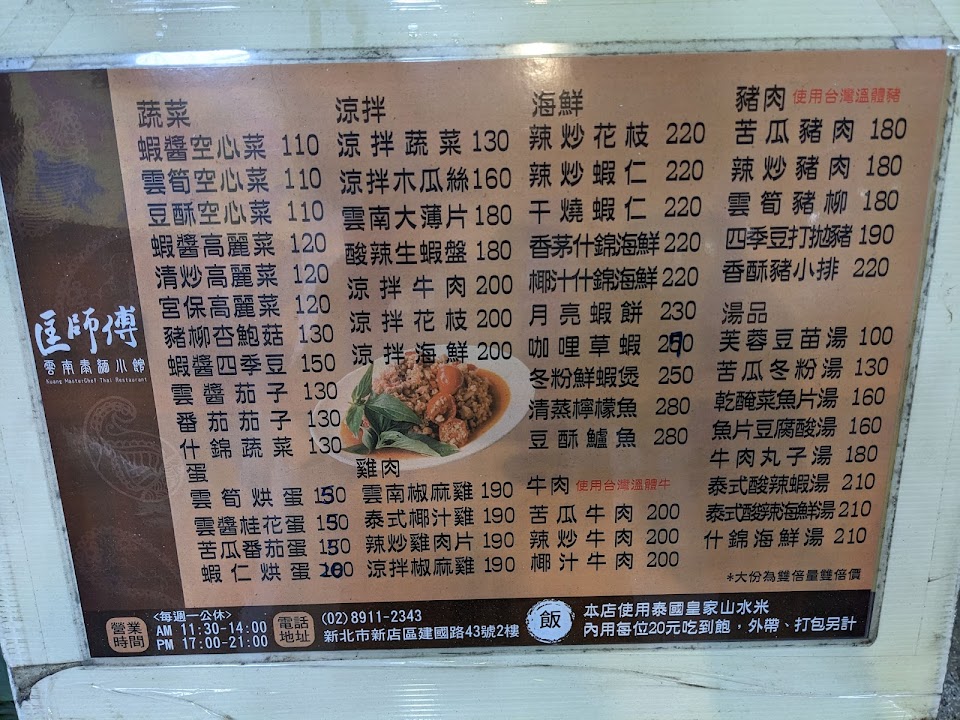 匡師傅
雲南泰緬小館
Kuang MasterChef Thai Restaurant
蔬菜
蝦醬空心菜 110
雲筍空心菜 110
豆酥空心菜 110
蝦醬高麗菜 120
清炒高麗菜 120
宮保高麗菜 120
豬柳杏鮑菇 130
蝦醬四季豆 150
雲醬茄子 130
番茄茄子 130
什錦蔬菜 130
蛋
雲筍烘蛋 150
雲醬桂花蛋 150
苦瓜番茄蛋 150
蝦仁烘蛋 200
涼拌
涼拌蔬菜 130
涼拌木瓜絲 160
雲南大薄片 180
酸辣生蝦盤 180
涼拌牛肉 200
涼拌花枝 200
涼拌海鮮 200
雞肉
雲南椒麻雞 190
泰式椰汁雞 190
辣炒雞肉片 190
涼拌椒麻雞 190
海鮮
辣炒花枝 220
辣炒蝦仁 220
干燒蝦仁 220
香茅什錦海鮮 220
椰汁什錦海鮮 220
月亮蝦餅 230
咖哩草蝦
冬粉鮮蝦煲 250
清蒸檸檬魚 280
豆酥鱸魚 280
牛肉 使用台灣溫體牛
苦瓜牛肉 200
辣炒牛肉 200
椰汁牛肉 200
豬肉 使用台灣溫體豬
苦瓜豬肉 180
辣炒豬肉 180
雲筍豬柳 180
四季豆打拋豬 190
香酥豬小排 220
湯品
芙蓉豆苗湯 100
苦瓜冬粉湯 130
乾醃菜魚片湯 160
魚片豆腐酸湯 160
牛肉丸子湯 180
泰式酸辣蝦湯 210
泰式酸辣海鮮湯 210
什錦海鮮湯 210
*大份為雙倍量雙倍價
營業時間
<每週一公休>
AM 11:30-14:00
PM 17:00-21:00
電話地址
(02) 8911-2343
新北市新店區建國路43號2樓
飯
本店使用泰國皇家山水米
內用每位20元吃到飽，外帶、打包另計